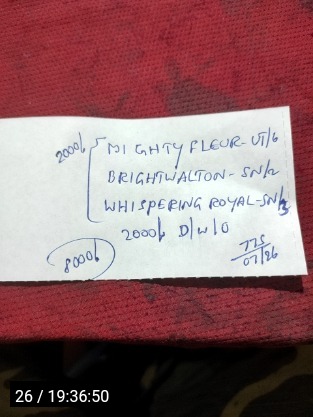 2000/- MIGHTY FLEUR - UT/6
BRIGHTWALTON - SN/2
WHISPERING ROYAL - SN/3
2000/- D/W/O
8000/-
775
07/26
26 / 19:36:50